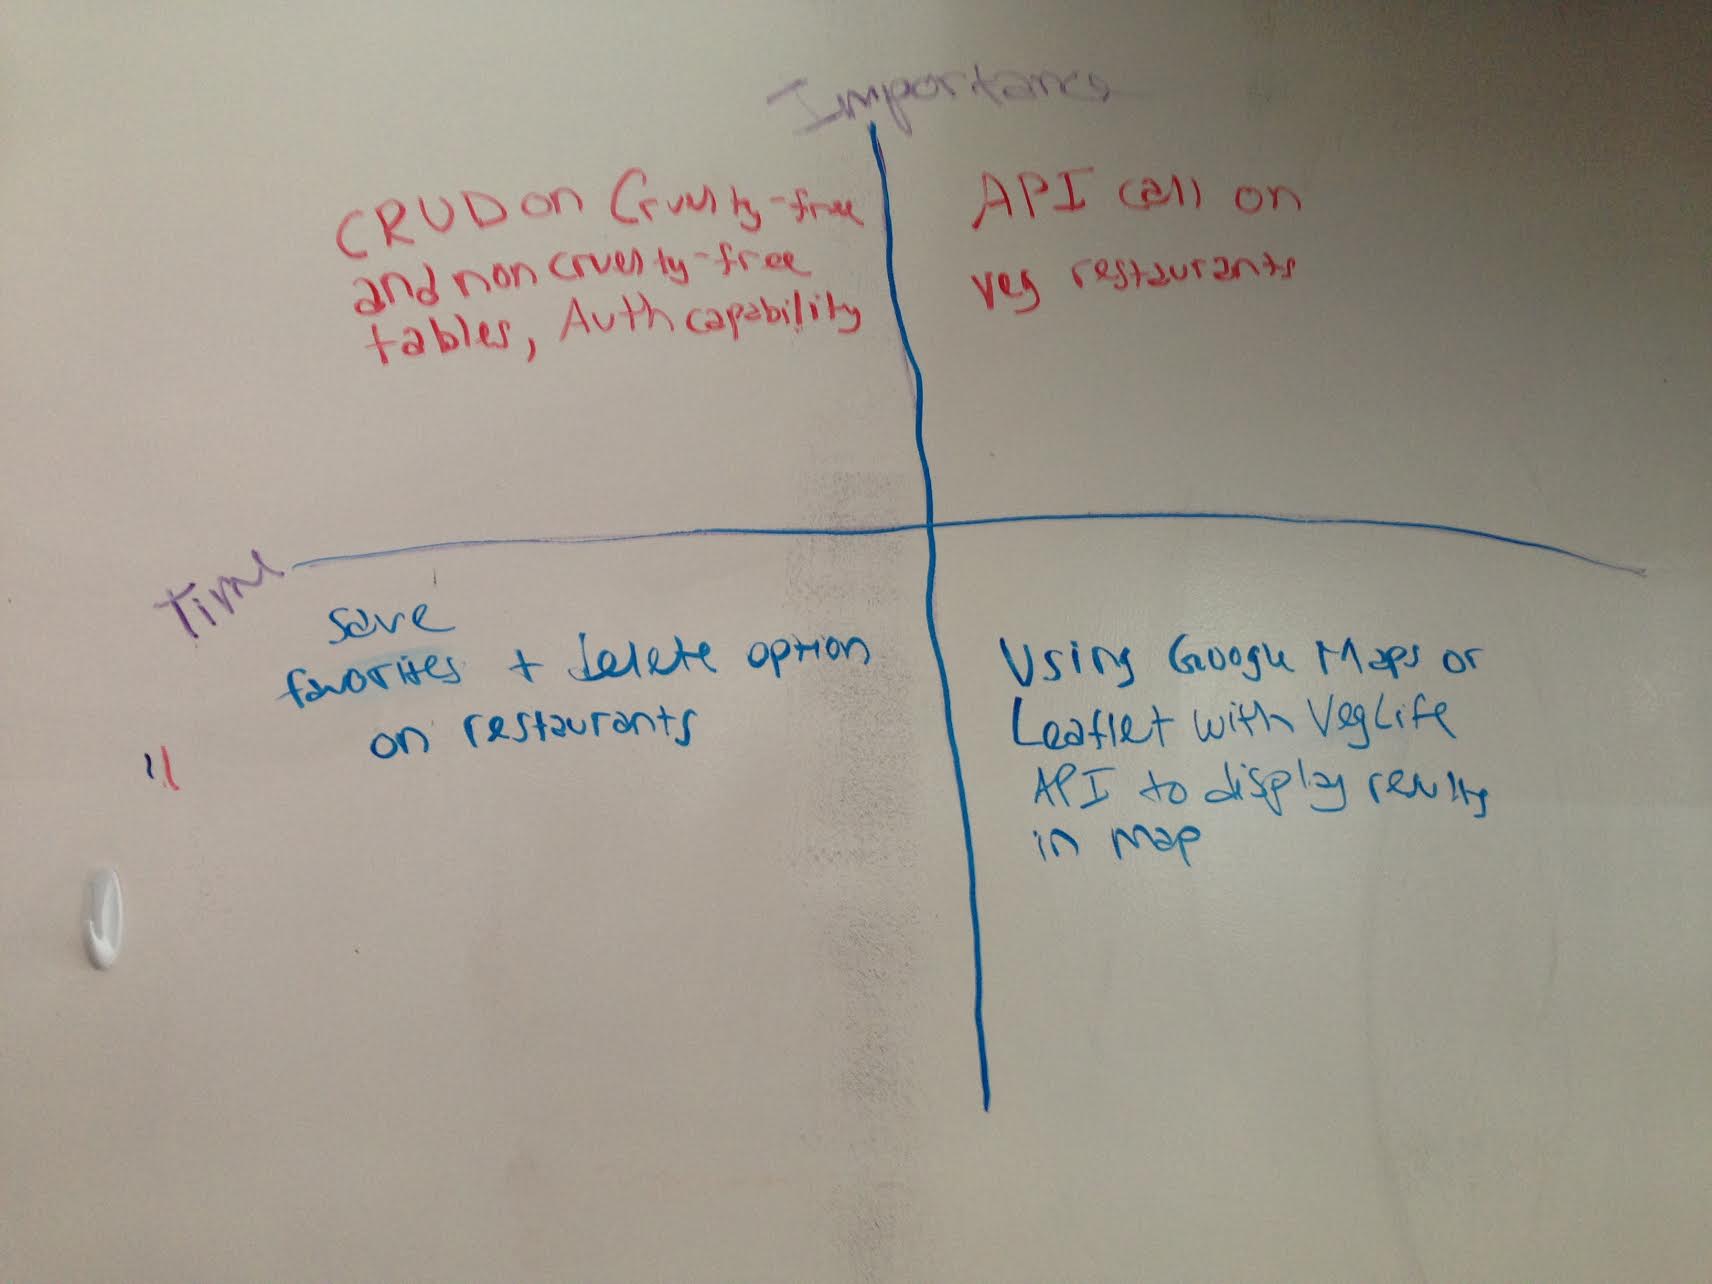 Importance
CRUD on Cruelty-free
and non cruelty-free
tables, Auth capability
API call on
veg restaurants
Time
Save
favorites + delete option
on restaurants
Using Google Maps or
Leaflet with VegLife
API to display results
in map